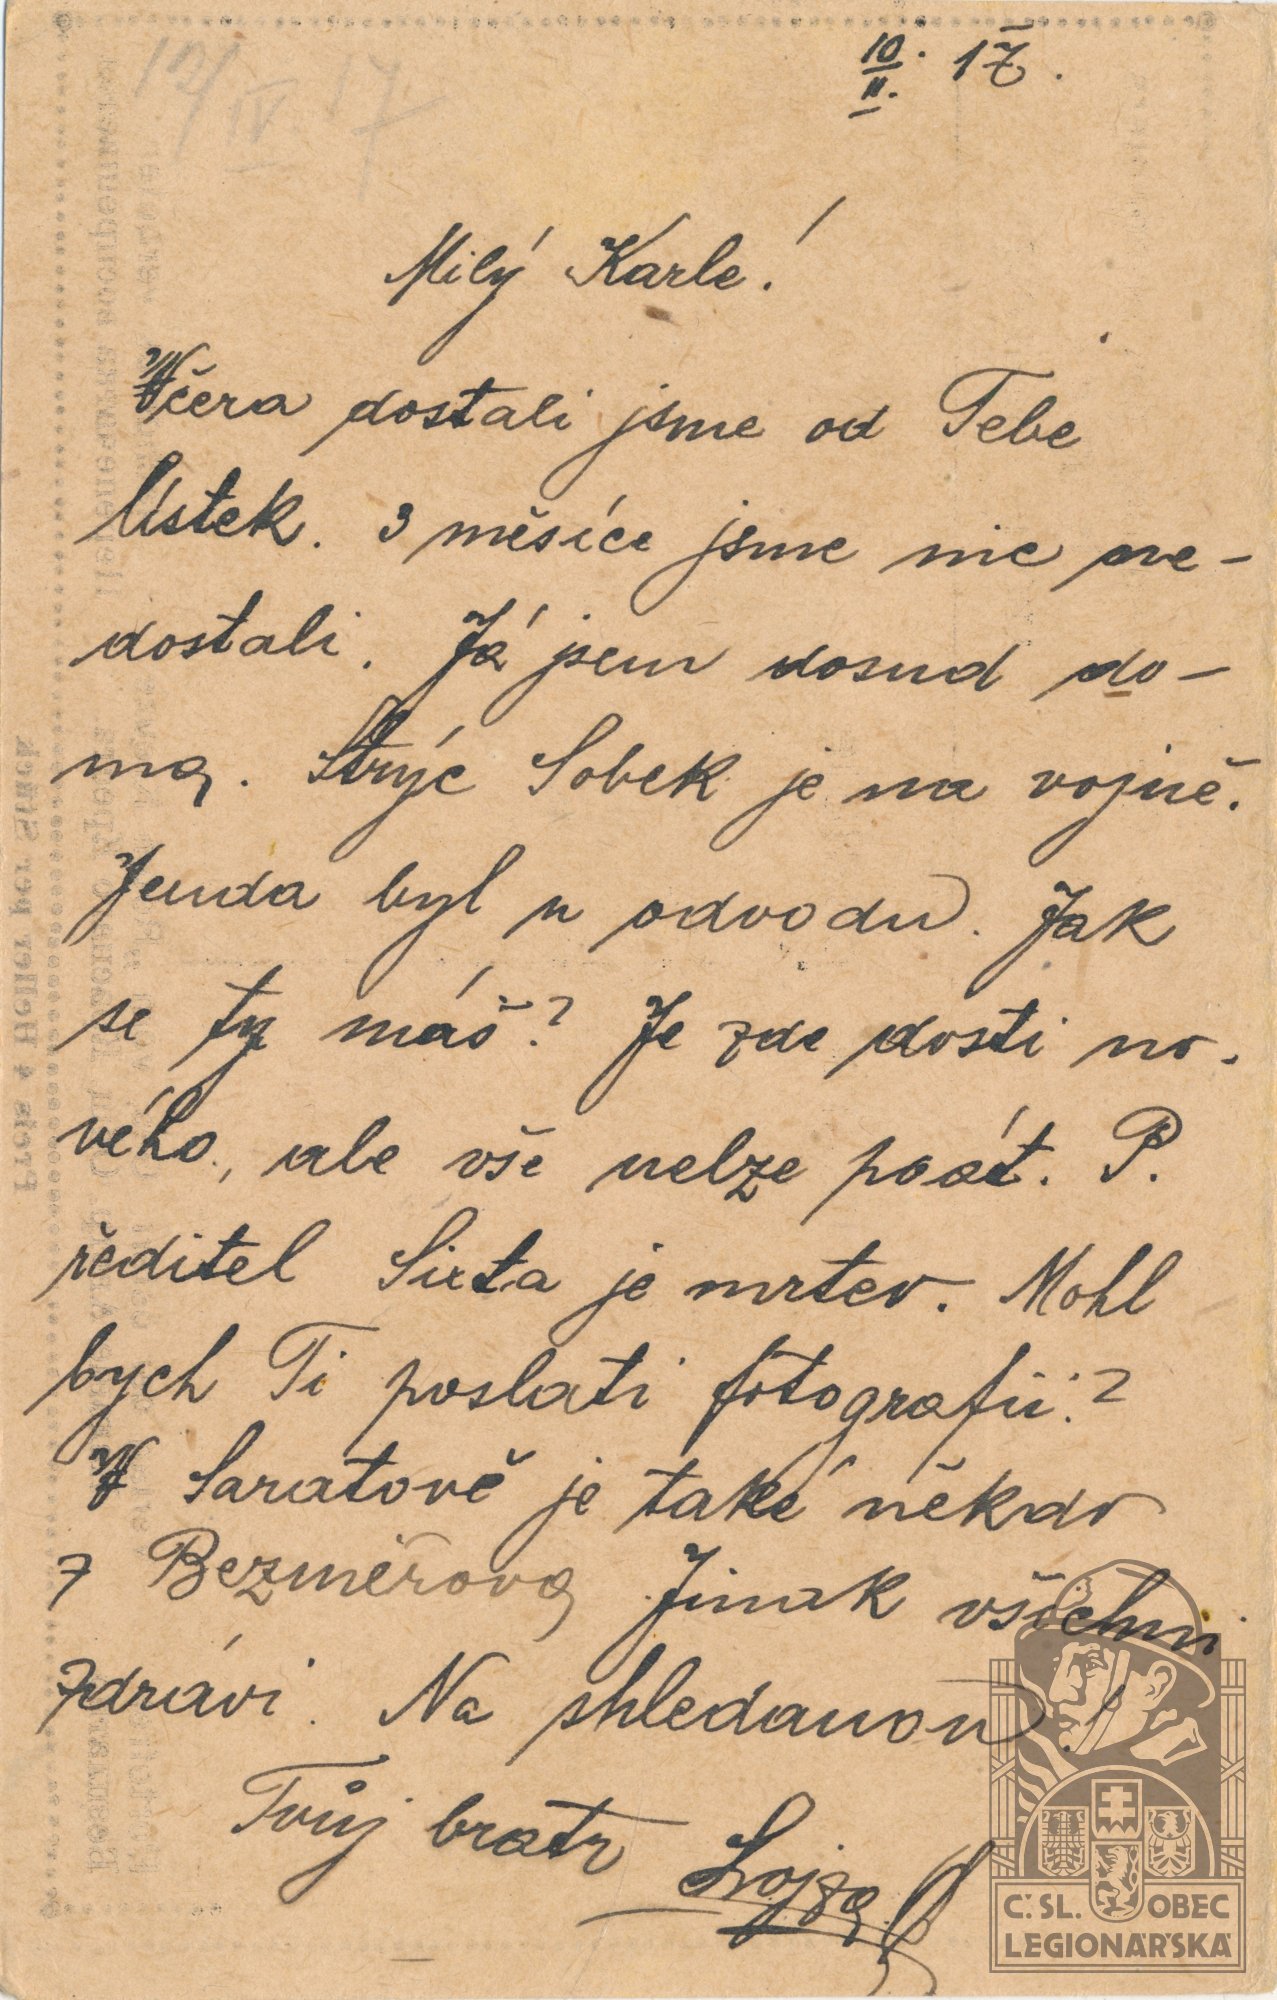 10/II. 17.
12/IV 17
Milý Karle!
Včera dostali jsme od Tebe
lístek. 3 měsíce jsme nic ne-
dostali. Já jsem dosud do-
ma. Strýc Sobek je na vojně.
Jenda byl u odvodu. Jak
se ty máš? Je zde dosti no-
vého, ale vše nelze psát. P.
ředitel Sixta je mrtev. Mohl
bych Ti poslati fotografii?
V Saratově je také někdo
z Bezměrova Jinak všichni
zdrávi. Na shledanou!
Tvůj bratr Lojza
Č. SL. OBEC
LEGIONÁŘSKÁ
Preis 4 Heller per Stück